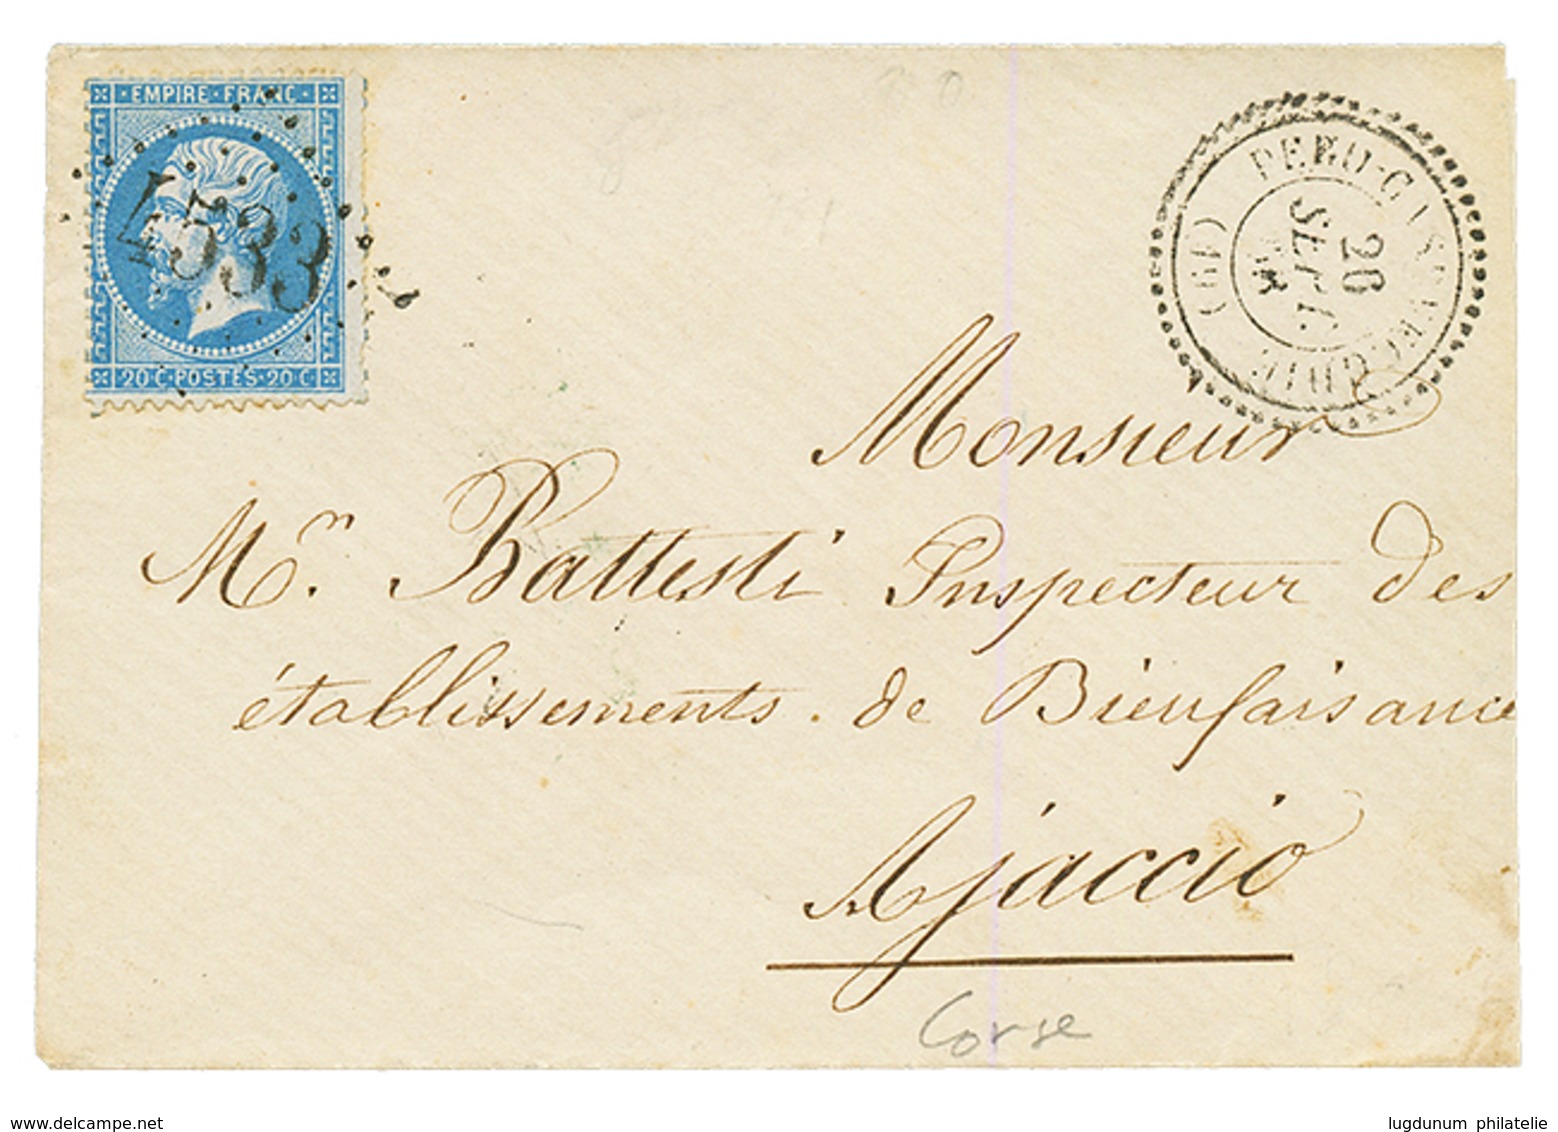 EMPIRE · FRANC
4533
20 C · POSTES · 20 C
PERO-CASEVECCHIE
(19)
26
SEPT.
Monsieur
Mr. Battesti Inspecteur des
établissements de Bienfaisance
Ajaccio
Corse
www.delcampe.net
lugdunum philatelie